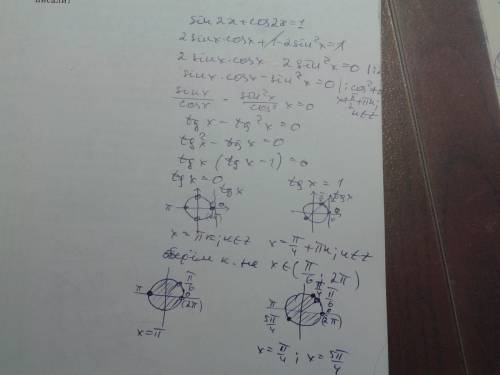 писали?
sin2x+cos2x=1
2sinx·cosx+1-2sin²x=1
2 sinx·cosx - 2sin²x=0 |:2
sinx·cosx-sin²x=0 |:cos²x≠0
x≠π/2+πn;
n∈Z
sinx/cosx - sin²x/cos² x=0
tgx-tg²x=0
tg²x-tgx=0
tgx(tgx-1)=0
tgx=0 tgx=1
tgx tgx
π 0
x=πn; n∈Z x=π/4+πn; n∈Z
x∈(π/6; 2π)
π π/6 0 (2π)
π/4 π/6 π 5π/4 0 (2π)
x=π
x=π/4; x=5π/4